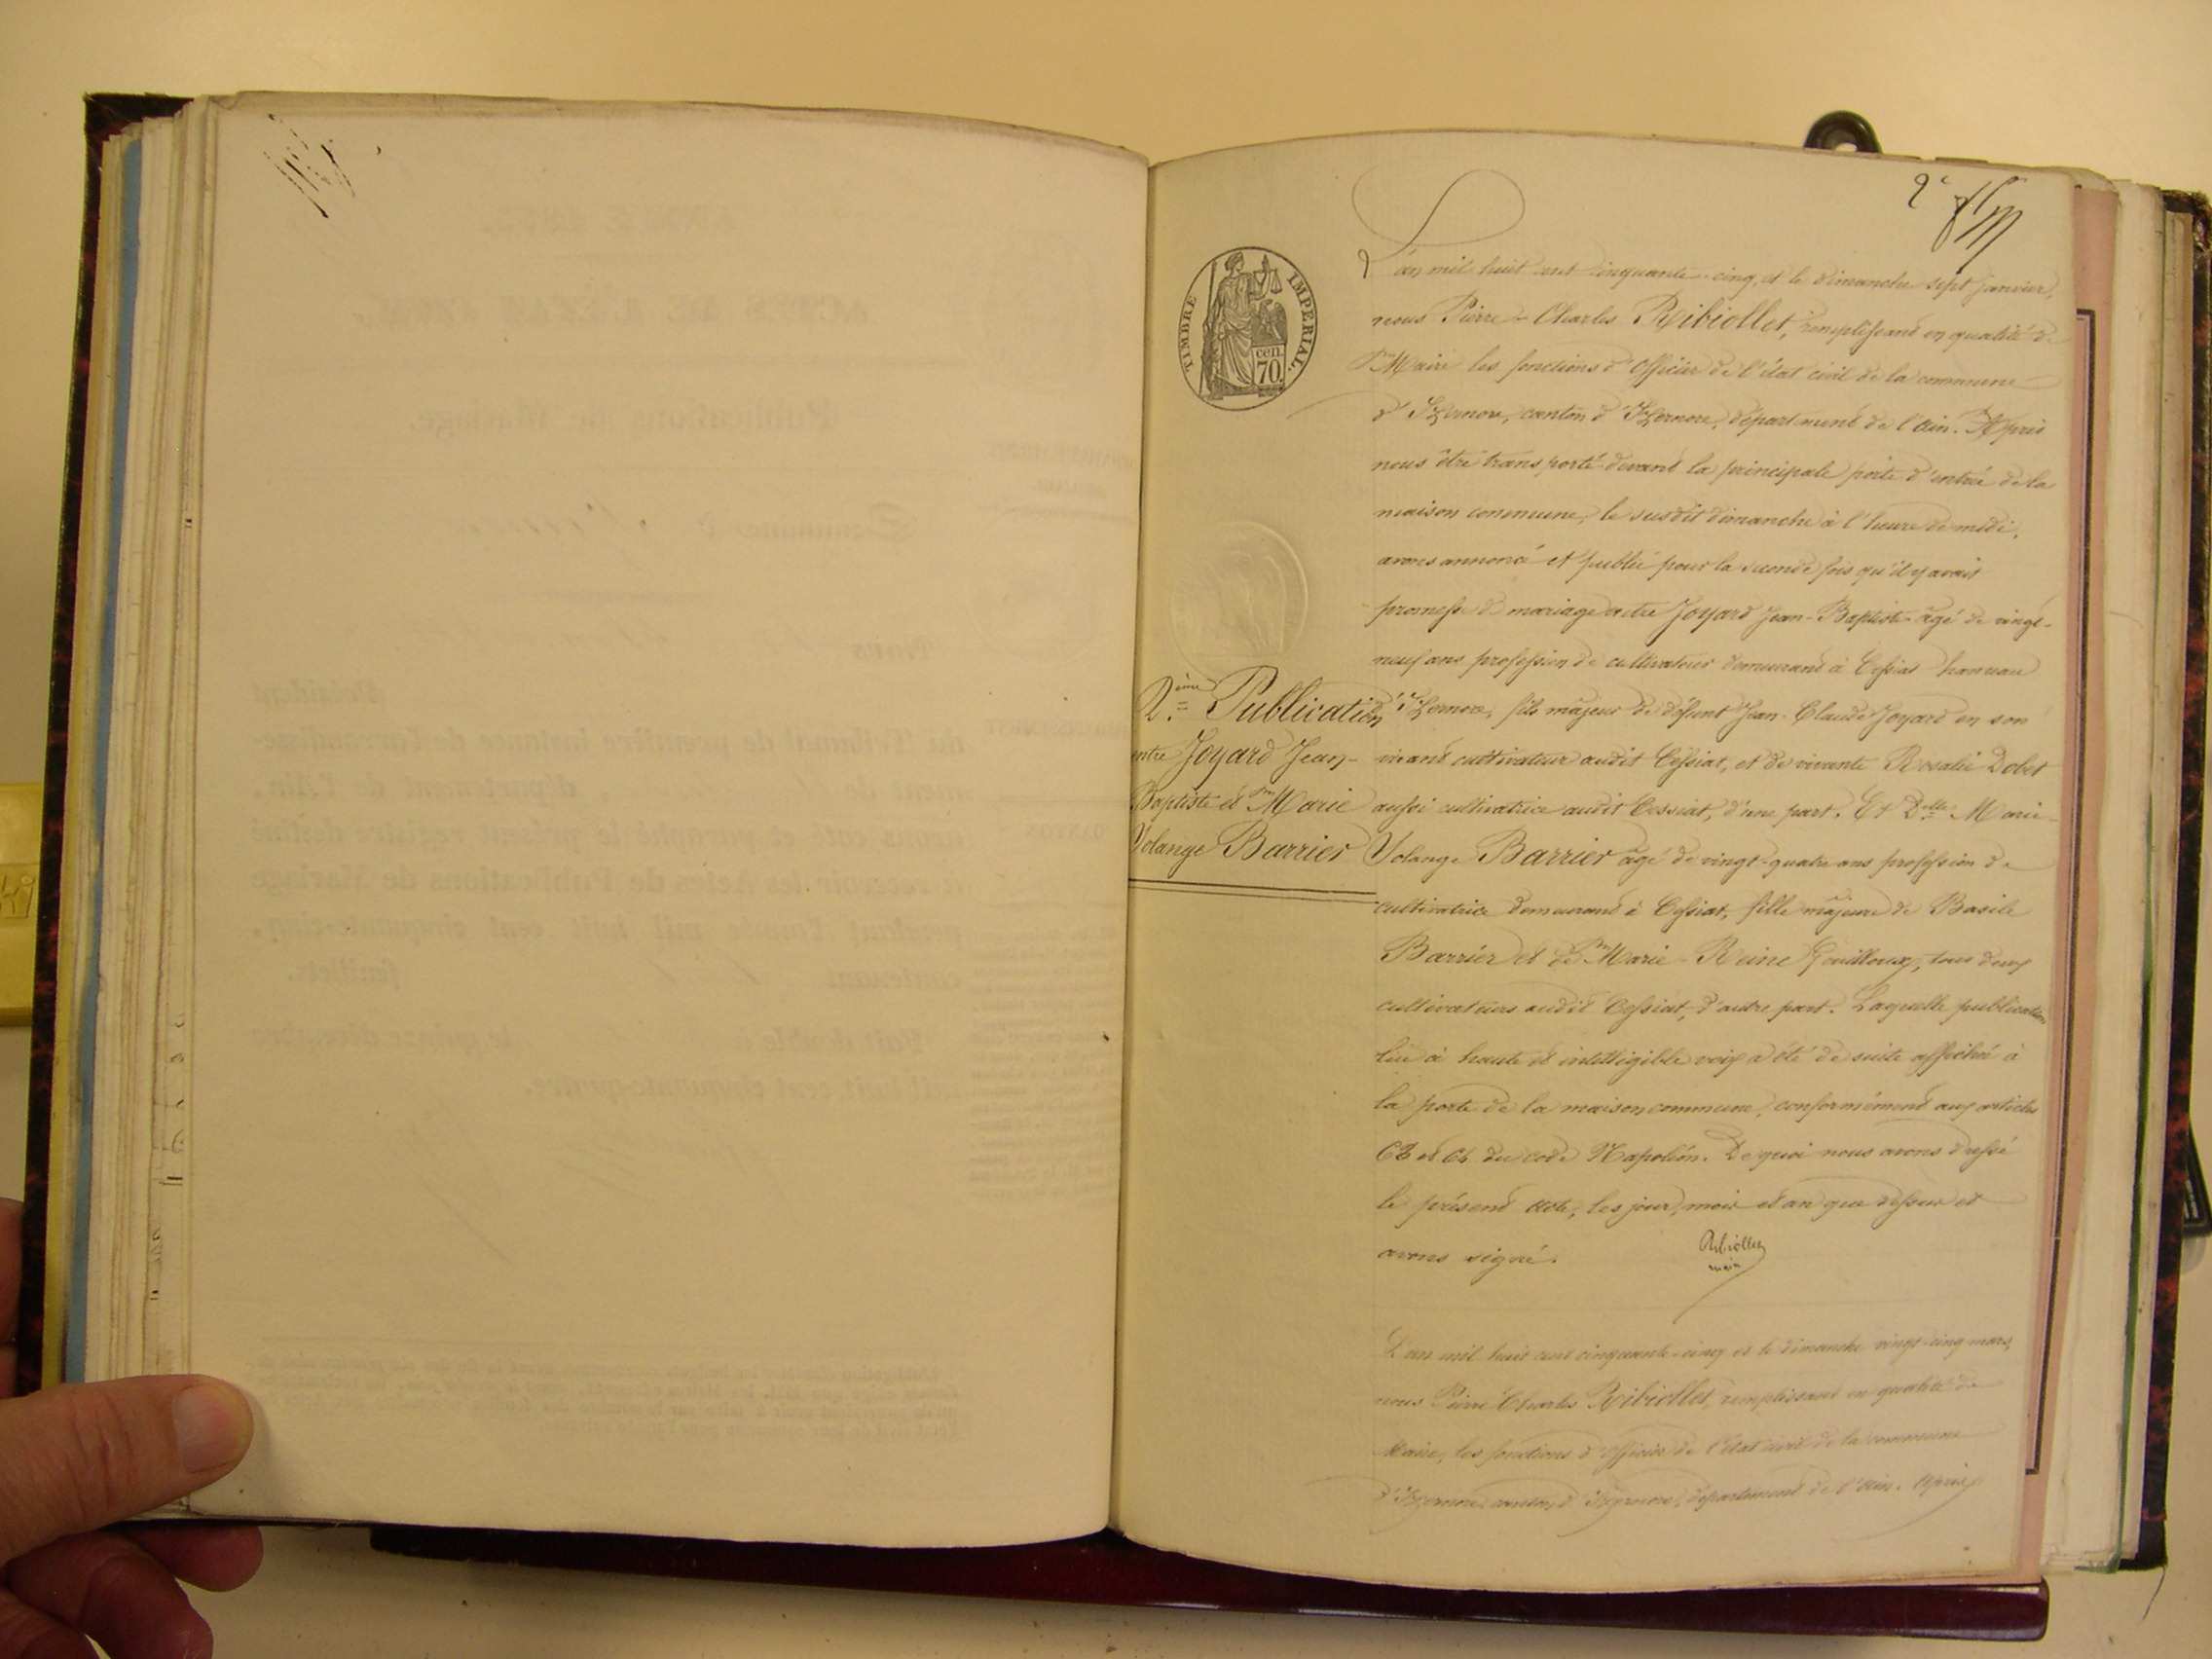 2e
TIMBRE IMPERIAL.
cen.
70.
L'an mil huit cent cinquante-cinq, et le dimanche sept janvier,
nous Pierre-Charles Ribiollet, remplissant en qualité de
Maire les fonctions d'officier de l'état civil de la commune
d'Izernore, canton d'Izernore, département de l'Ain. Après
nous être transporté devant la principale porte d'entrée de la
maison commune, le susdit dimanche à l'heure de midi,
avons annoncé et publié pour la seconde fois qu'il y avait
promesse de mariage entre Joyard Jean-Baptiste âgé de vingt-
neuf ans profession de cultivateur demeurant à Cessiat hameau
d'Izernore, fils majeur de défunt Jean-Claude Joyard en son
vivant cultivateur audit Cessiat, et de vivante Rosalie Dobet
aussi cultivatrice audit Cessiat, d'une part. Et Delle Marie-
Yolange Barrier âgé de vingt-quatre ans profession de
cultivatrice demeurant à Cessiat, fille majeure de Basile
Barrier et de Marie-Reine Gouilloux, tous deux
cultivateurs audit Cessiat, d'autre part. Laquelle publication
lue à haute et intelligible voix a été de suite affichée à
la porte de la maison commune, conformément aux articles
63 et 64 du code Napoléon. De quoi nous avons dressé
le présent acte, les jour, mois et an que dessus et
avons signé.
Ribiollet
maire
2.ème Publication
entre Joyard Jean-
Baptiste et Marie
Yolange Barrier
L'an mil huit cent cinquante-cinq et le dimanche vingt-cinq mars,
nous Pierre Charles Ribiollet, remplissant en qualité de
Maire, les fonctions d'officier de l'état civil de la commune
d'Izernore, canton d'Izernore, département de l'Ain. Après